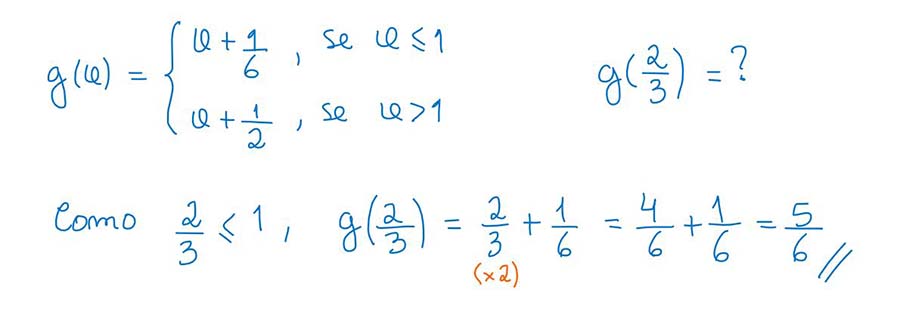 g(φ) = { φ + 1/6 , se φ ≤ 1
φ + 1/2 , se φ > 1
g(2/3) = ?
Como 2/3 ≤ 1, g(2/3) = 2/3 + 1/6 = 4/6 + 1/6 = 5/6 //
(×2)